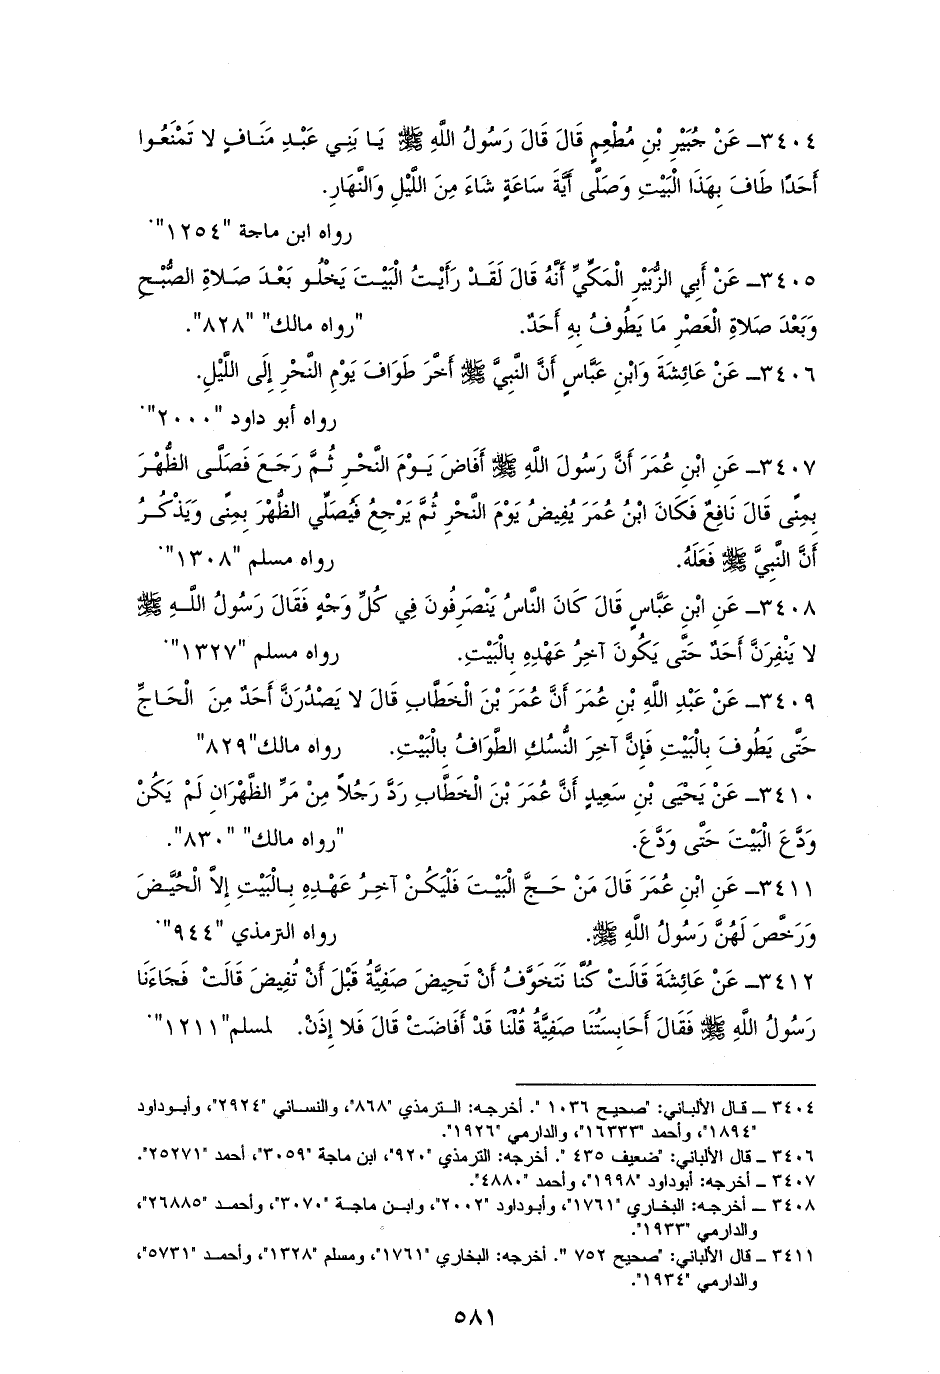 ٣٤٠٤ـ عَنْ جُبَيْرِ بْنِ مُطْعِمٍ قَالَ قَالَ رَسُولُ اللَّهِ ﷺ يَا بَنِي عَبْدِ مَنَافٍ لا تَمْنَعُوا
أَحَدًا طَافَ بِهَذَا الْبَيْتِ وَصَلَّى أَيَّةَ سَاعَةٍ شَاءَ مِنَ اللَّيْلِ وَالنَّهَارِ.
رواه ابن ماجة "١٢٥٤".
٣٤٠٥ـ عَنْ أَبِي الزُّبَيْرِ الْمَكِّيِّ أَنَّهُ قَالَ لَقَدْ رَأَيْتُ الْبَيْتَ يَخْلُو بَعْدَ صَلاةِ الصُّبْحِ
وَبَعْدَ صَلاةِ الْعَصْرِ مَا يَطُوفُ بِهِ أَحَدٌ. "رواه مالك" "٨٢٨".
٣٤٠٦ـ عَنْ عَائِشَةَ وَابْنِ عَبَّاسٍ أَنَّ النَّبِيَّ ﷺ أَخَّرَ طَوَافَ يَوْمِ النَّحْرِ إِلَى اللَّيْلِ.
رواه أبو داود "٢٠٠٠".
٣٤٠٧ـ عَنِ ابْنِ عُمَرَ أَنَّ رَسُولَ اللَّهِ ﷺ أَفَاضَ يَوْمَ النَّحْرِ ثُمَّ رَجَعَ فَصَلَّى الظُّهْرَ
بِمِنًى قَالَ نَافِعٌ فَكَانَ ابْنُ عُمَرَ يُفِيضُ يَوْمَ النَّحْرِ ثُمَّ يَرْجِعُ فَيُصَلِّي الظُّهْرَ بِمِنًى وَيَذْكُرُ
أَنَّ النَّبِيَّ ﷺ فَعَلَهُ. رواه مسلم "١٣٠٨".
٣٤٠٨ـ عَنِ ابْنِ عَبَّاسٍ قَالَ كَانَ النَّاسُ يَنْصَرِفُونَ فِي كُلِّ وَجْهٍ فَقَالَ رَسُولُ اللَّهِ ﷺ
لا يَنْفِرَنَّ أَحَدٌ حَتَّى يَكُونَ آخِرُ عَهْدِهِ بِالْبَيْتِ. رواه مسلم "١٣٢٧".
٣٤٠٩ـ عَنْ عَبْدِ اللَّهِ بْنِ عُمَرَ أَنَّ عُمَرَ بْنَ الْخَطَّابِ قَالَ لا يَصْدُرَنَّ أَحَدٌ مِنَ الْحَاجِّ
حَتَّى يَطُوفَ بِالْبَيْتِ فَإِنَّ آخِرَ النُّسُكِ الطَّوَافُ بِالْبَيْتِ. رواه مالك"٨٢٩"
٣٤١٠ـ عَنْ يَحْيَى بْنِ سَعِيدٍ أَنَّ عُمَرَ بْنَ الْخَطَّابِ رَدَّ رَجُلاً مِنْ مَرِّ الظَّهْرَانِ لَمْ يَكُنْ
وَدَّعَ الْبَيْتَ حَتَّى وَدَّعَ. "رواه مالك" "٨٣٠".
٣٤١١ـ عَنِ ابْنِ عُمَرَ قَالَ مَنْ حَجَّ الْبَيْتَ فَلْيَكُنْ آخِرُ عَهْدِهِ بِالْبَيْتِ إِلاَّ الْحُيَّضَ
وَرَخَّصَ لَهُنَّ رَسُولُ اللَّهِ ﷺ. رواه الترمذي "٩٤٤".
٣٤١٢ـ عَنْ عَائِشَةَ قَالَتْ كُنَّا نَتَخَوَّفُ أَنْ تَحِيضَ صَفِيَّةُ قَبْلَ أَنْ تُفِيضَ قَالَتْ فَجَاءَنَا
رَسُولُ اللَّهِ ﷺ فَقَالَ أَحَابِسَتُنَا صَفِيَّةُ قُلْنَا قَدْ أَفَاضَتْ قَالَ فَلا إِذَنْ. لمسلم"١٢١١".
٣٤٠٤ ـ قال الألباني: "صحيح ١٠٣٦ ". أخرجه: الترمذي "٨٦٨"، والنسائي "٢٩٢٤"، وأبوداود
"١٨٩٤"، وأحمد "١٦٣٣٣"، والدارمي "١٩٢٦".
٣٤٠٦ ـ قال الألباني: "ضعيف ٤٣٥ ". أخرجه: الترمذي "٩٢٠"، ابن ماجة "٣٠٥٩"، أحمد "٢٥٢٧١".
٣٤٠٧ ـ أخرجه: أبوداود "١٩٩٨"، وأحمد "٤٨٨٠".
٣٤٠٨ ـ أخرجه: البخاري "١٧٦١"، وأبوداود "٢٠٠٢"، وابن ماجة "٣٠٧٠"، وأحمد "٢٦٨٨٥"،
والدارمي "١٩٣٣".
٣٤١١ ـ قال الألباني: "صحيح ٧٥٢ ". أخرجه: البخاري "١٧٦١"، ومسلم "١٣٢٨"، وأحمد "٥٧٣١"،
والدارمي "١٩٣٤".
٥٨١